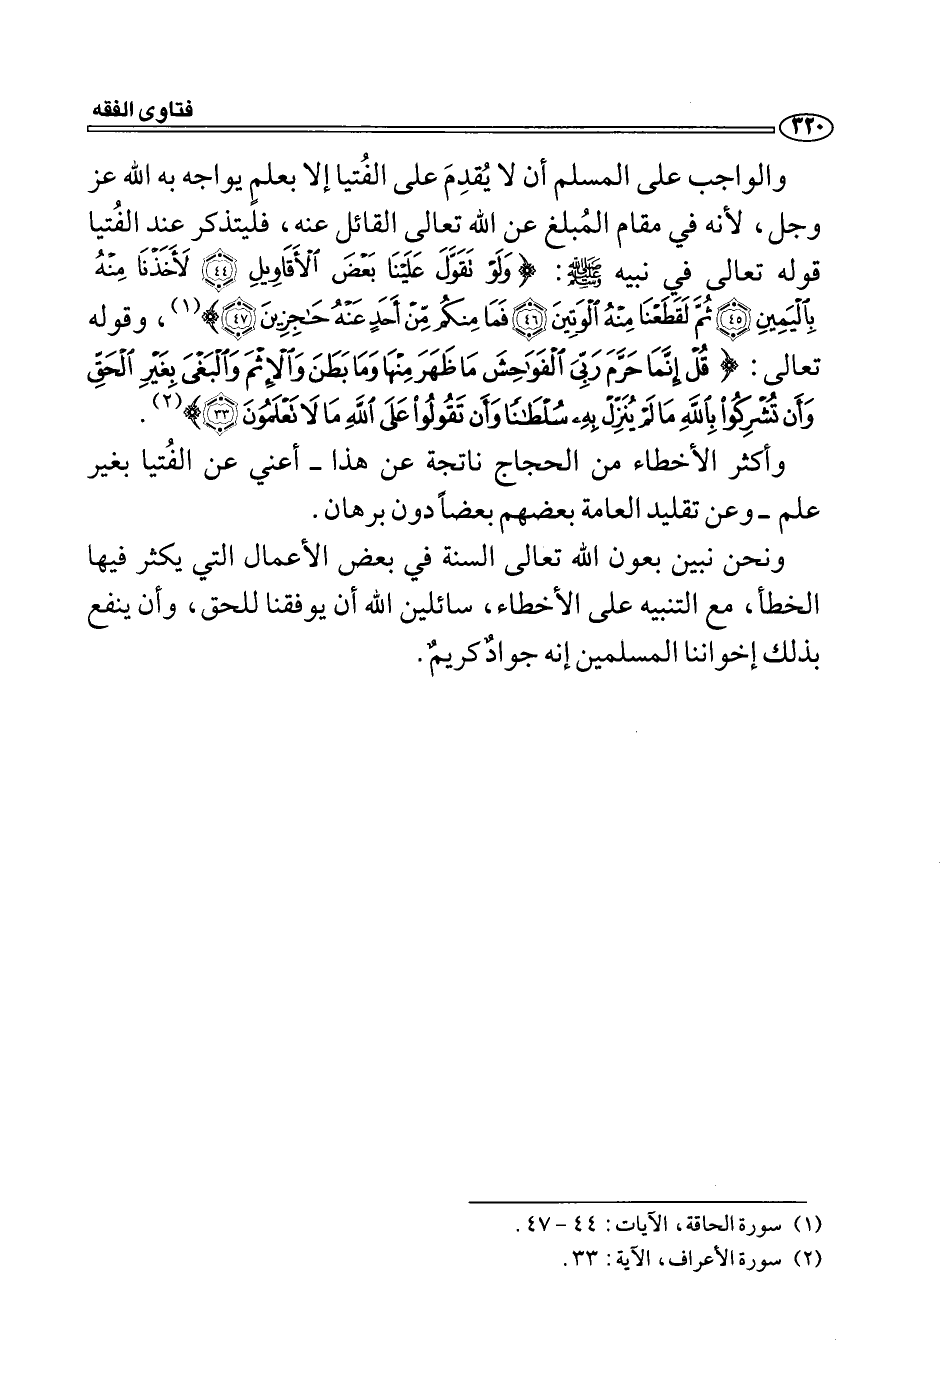 فتاوى الفقه
٣٢٠
والواجب على المسلم أن لا يُقدِمَ على الفُتيا إلا بعلمٍ يواجه به الله عز
وجل، لأنه في مقام المُبلغ عن الله تعالى القائل عنه، فليتذكر عند الفُتيا
قوله تعالى في نبيه ﷺ: ﴿وَلَوْ نَقَوَّلَ عَلَيْنَا بَعْضَ ٱلْأَقَاوِيلِ ٤٤ لَأَخَذْنَا مِنْهُ
بِٱلْيَمِينِ ٤٥ ثُمَّ لَقَطَعْنَا مِنْهُ ٱلْوَتِينَ ٤٦ فَمَا مِنكُم مِّنْ أَحَدٍ عَنْهُ حَٰجِزِينَ ٤٧﴾(١)، وقوله
تعالى: ﴿قُلْ إِنَّمَا حَرَّمَ رَبِّىَ ٱلْفَوَٰحِشَ مَا ظَهَرَ مِنْهَا وَمَا بَطَنَ وَٱلْإِثْمَ وَٱلْبَغْىَ بِغَيْرِ ٱلْحَقِّ
وَأَن تُشْرِكُوا۟ بِٱللَّهِ مَا لَمْ يُنَزِّلْ بِهِۦ سُلْطَٰنًا وَأَن تَقُولُوا۟ عَلَى ٱللَّهِ مَا لَا نَعْلَمُونَ ٣٣﴾(٢).
وأكثر الأخطاء من الحجاج ناتجة عن هذا ـ أعني عن الفُتيا بغير
علم ـ وعن تقليد العامة بعضهم بعضاً دون برهان.
ونحن نبين بعون الله تعالى السنة في بعض الأعمال التي يكثر فيها
الخطأ، مع التنبيه على الأخطاء، سائلين الله أن يوفقنا للحق، وأن ينفع
بذلك إخواننا المسلمين إنه جوادٌ كريمٌ.
(١) سورة الحاقة، الآيات: ٤٤ - ٤٧.
(٢) سورة الأعراف، الآية: ٣٣.